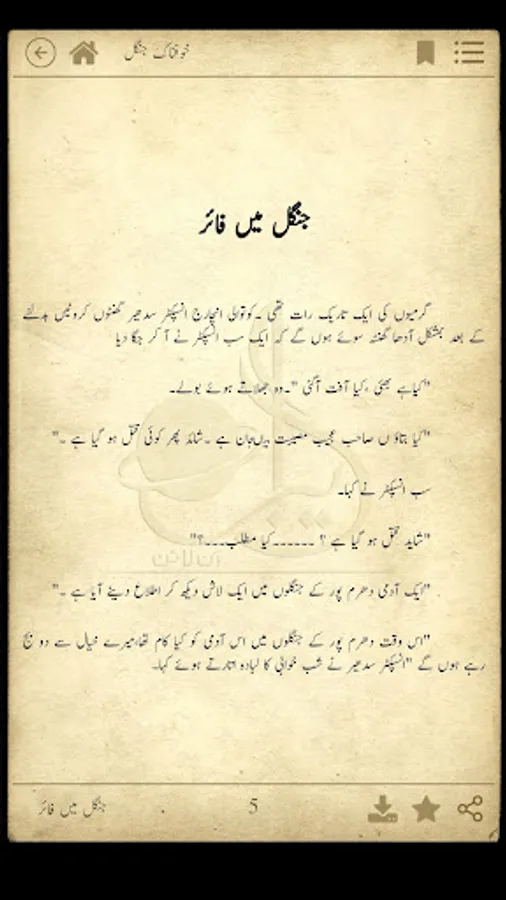 خوفناک جنگل
جنگل میں فائر
گرمیوں کی ایک تاریک رات تھی ۔کوتوالی انچارج انسپکٹر سدھیر گھنٹوں کروٹیں بدلنے
کے بعد بمشکل آدھا گھنٹہ سوئے ہوں گے کہ ایک سب انسپکٹر نے آ کر جگا دیا
"کیاہے بھئی ،کیا آفت آگئی "۔وہ جھلاتے ہوئے بولے۔
"کیا بتاؤں صاحب عجیب مصیبت میں جان ہے ۔شائد پھر کوئی قتل ہو گیا ہے ۔"
سب انسپکٹر نے کہا۔
"شاید قتل ہو گیا ہے ؟ ۔۔۔۔۔۔کیا مطلب۔۔۔؟"
"ایک آدمی دھرم پور کے جنگلوں میں ایک لاش دیکھ کر اطلاع دینے آیا ہے ۔"
"اس وقت دھرم پور کے جنگلوں میں اس آدمی کو کیا کام تھا،میرے خیال سے دو بج
رہے ہوں گے "انسپکٹر سدھیر نے شب خوابی کا لبادہ اتارتے ہوئے کہا۔
آن لائن
جنگل میں فائر
5